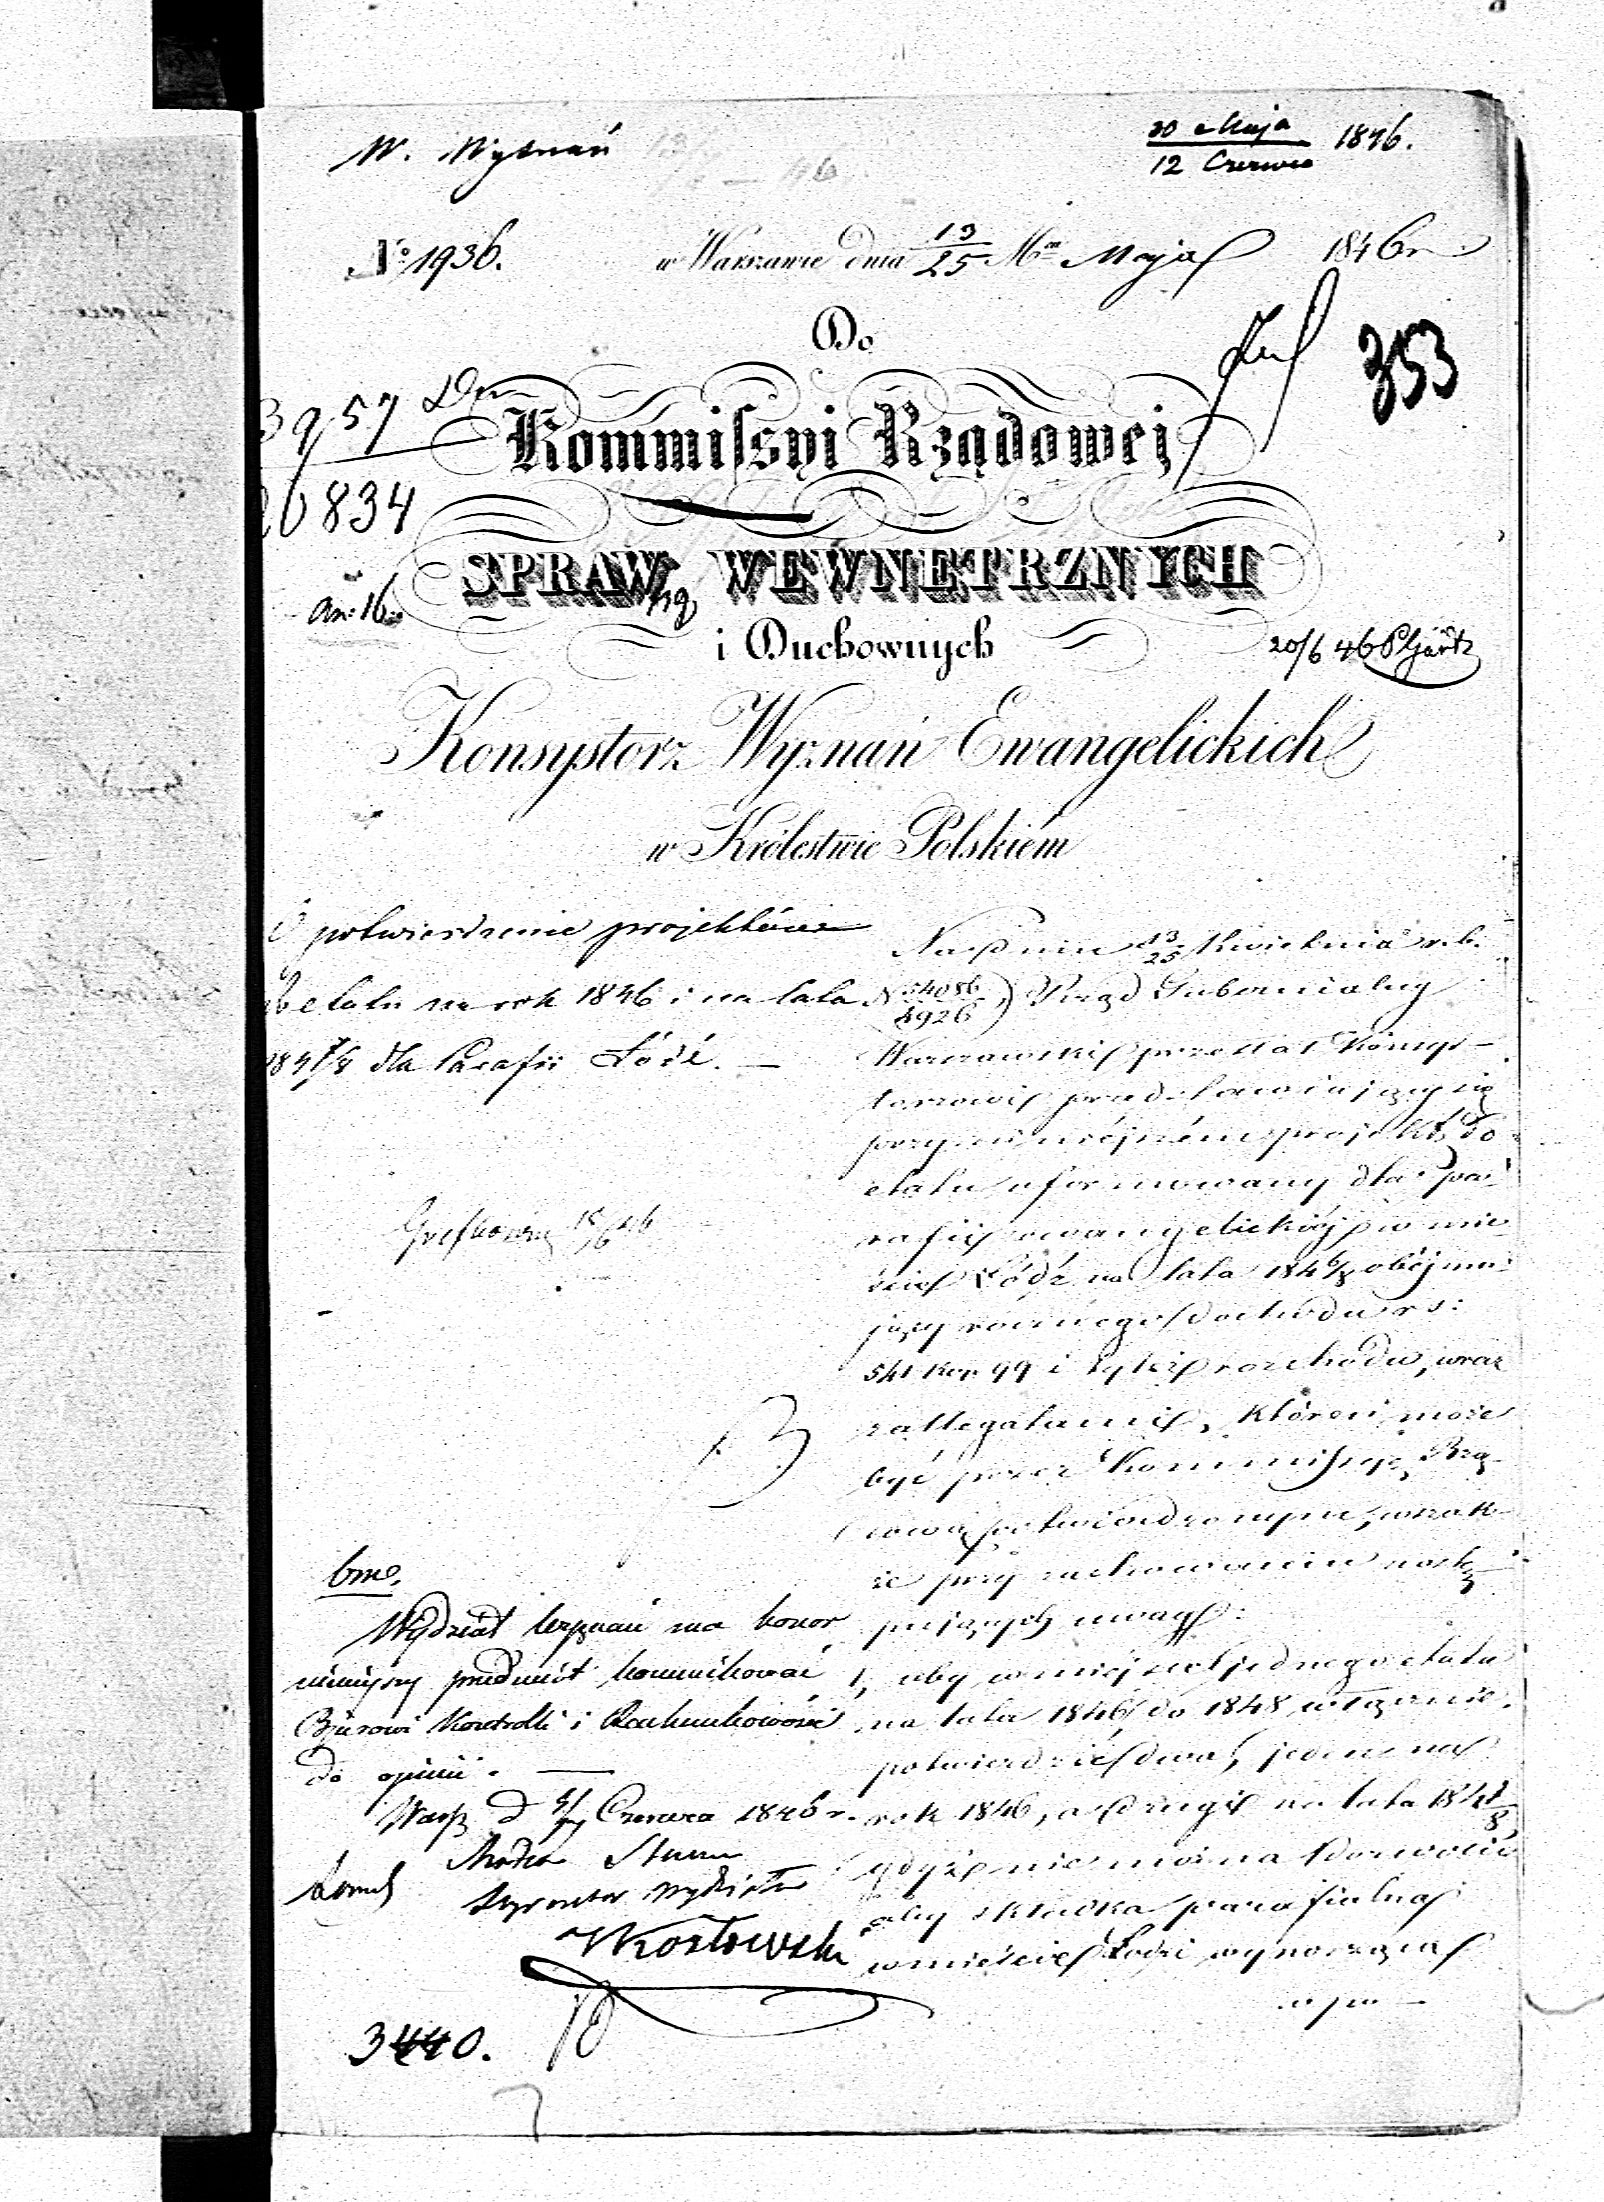 W. Wyznań
30 Maja
12 Czerwca 1846.
No 1936.
w Warszawie dnia 13/25 Mca Maja 1846 r.
Do
353
3957
20834
Kommissyi Rządowej
SPRAW WEWNETRZNYCH
an: 16
i Duchownych
20/6 46
Konsystorz Wyznań Ewangelickich
w Królestwie Polskiém
O potwierdzenie projektów
do etatu na rok 1846 i na lata
1847/8 dla Parafii Łódź. —
Na dniu 13/25 Kwietnia r. b.
N 34086/4926) Rząd Gubernialny
Warszawski przesłał Konsys-
torzowi przedstawiający się
przy niniejszém projekt do
etatu uformowany dla pa-
rafii ewangelickiéj w mie-
ście Łódź na lata 1846/8 obejmu-
jący rocznego dochodu rs:
541 kop. 99 i tyleż rozchodu, wraz
z allegatami, któren może
być przez Kommissyę Rzą-
dową potwierdzonym, wszak-
że przy zachowaniu nastę-
pujących uwag:
1, aby w miejsce jednego etatu
na lata 1846 do 1848 włącznie,
potwierdzić dwa, jeden na
rok 1846, a drugi na lata 1847/8,
gdyż nie można dozwolić
aby składka parafialna
w mieście Łodzi wynosząca
18/6 46
bm.
Wydział Wyznań ma honor
niniejszy przedmiot komunikować
Bjurowi Kontrolli i Rachunkowości
do opinii. —
Warsz. d Czerwca 1846 r.
Radca Stanu
Dyrektor Wydziału
Kozłowski
3440.